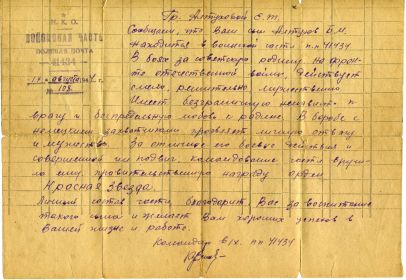 Н.К.О.
ВОИНСКАЯ ЧАСТЬ
ПОЛЕВАЯ ПОЧТА
41434
августа
№ 108
Гр. Алтуховой Е.Т.
Сообщаем, что Ваш сын Алтухов Б.М.
находится в воинской части п.п 41434
В боях за советскую родину на фрон-
те отечественной войны, действует
смело, решительно, мужественно
Имеет безграничную ненависть к
врагу и беспредельную любовь к родине. В борьбе с
немецкими захватчиками проявляет личную отвагу
и мужество. За отличные его боевые действия и
совершенный им подвиг, командование части вручи-
ло ему правительственную награду орден
"Красная Звезда.
Личный состав части, благодарит Вас за воспитание
такого сына и желает Вам хороших успехов в
Вашей жизни и работе.
Командир в/ч. пп 41434